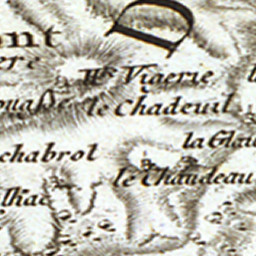 D
ont
ere
Viaerie
le Chadeuil
la Glau
chabrol
le Chaudeau
lhac